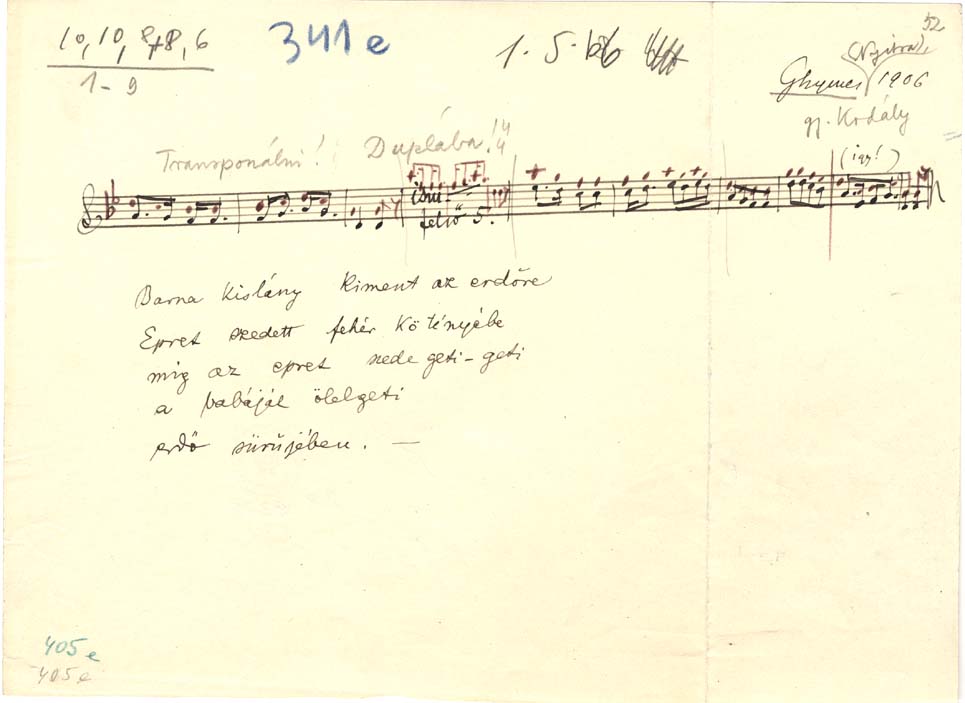 52
10, 10, 8+8, 6
1-9
341e
1. 5. b6
(Nyitra),
Ghymes 1906
gy. Kodály
Transponálni! Duplába! 4/4
(így!)
ism.
felső 5.
Barna Kislány Kiment az erdőre
Epret szedett fehér Kötényébe
mig az epret szede geti-geti
a babáját ölelgeti
erdő sürüjében. —
405e
405e